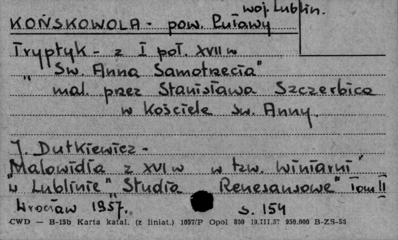 woj. Lublin.
KOŃSKOWOLA - pow. Puławy
Tryptyk - z I poł. XVII w
"Św. Anna Samotrzecia"
mal. przez Stanisława Szczerbica
w Kościele św. Anny.
J. Dutkiewicz -
"Malowidła z XVI w w tzw. Winiarni
w Lublinie", Studia Renesansowe" Tom II
Wrocław 1957. s. 154
CWD — B-15b Karta katal. (z liniat.) 1057/P Opol 850 19.III.57 950.000 B-ZS-55